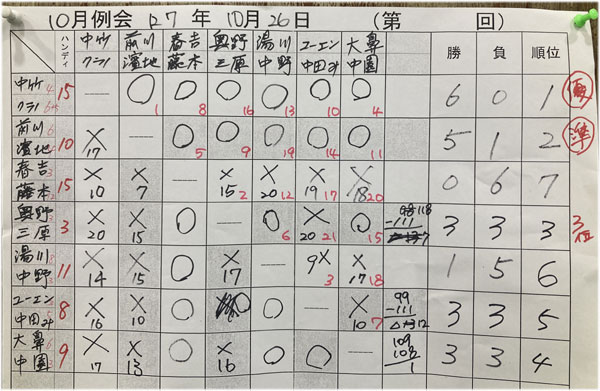 10月例会 27年 10月26日 (第 回)
ハンディ 中竹 クラノ 前川 濱地 春吉 藤本 奥野 三原 湯川 中野 ユーエン 中田み 大鼻 中園 勝 負 順位
中竹 クラノ 15 — ○1 ○8 ○16 ○13 ○10 ○4 6 0 1 優
前川 濱地 10 ×17 — ○5 ○9 ○19 ○14 ○11 5 1 2 準
春吉 藤本 15 ×10 ×7 — ×15 2 ×20 12 ×19 17 ×18 20 0 6 7
奥野 三原 3 ×20 ×15 ○ — ○6 ×20 21 ○15 3 3 3 3位
湯川 中野 11 ×14 ×15 ○ ×17 — 9× 3 ×17 18 1 5 6
ユーエン 中田み 8 ×16 ×10 ○ ○ — ×10 7 99 -111 12 3 3 5
大鼻 中園 9 ×17 ×13 ○ ×16 ○ ○ — 109 108 1 3 3 4